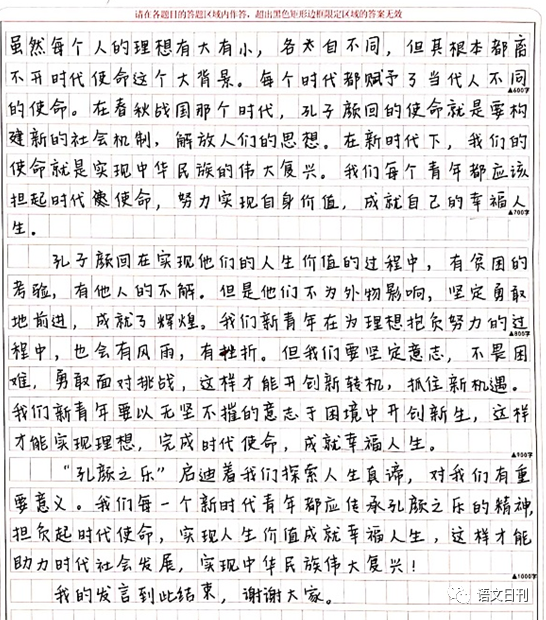 请在各题目的答题区域内作答，超出黑色矩形边框限定区域的答案无效
虽然每个人的理想有大有小，各大自不同，但其根本都离
不开时代使命这个大背景。每个时代都赋予了当代人不同
▲600字
的使命。在春秋战国那个时代，孔子颜回的使命就是要构
建新的社会机制，解放人们的思想。在新时代下，我们的
使命就是实现中华民族的伟大复兴。我们每个青年都应该
担起时代使命，努力实现自身价值，成就自己的幸福人
▲700字
生。
孔子颜回在实现他们的人生价值的过程中，有贫困的
考验，有他人的不解。但是他们不为外物影响，坚定勇敢
地前进，成就了辉煌。我们新青年在为理想抱负努力的过
▲800字
程中，也会有风雨，有挫折。但我们要坚定意志，不畏困
难，勇敢面对挑战，这样才能开创新转机，抓住新机遇。
我们新青年要以无坚不摧的意志于困境中开创新生，这样
才能实现理想，完成时代使命，成就幸福人生。
▲900字
“孔颜之乐”启迪着我们探索人生真谛，对我们有重
要意义。我们每一个新时代青年都应传承孔颜之乐的精神，
担负起时代使命，实现人生价值成就幸福人生，这样才能
助力时代社会发展，实现中华民族伟大复兴！
▲1000字
我的发言到此结束，谢谢大家。
语文日刊